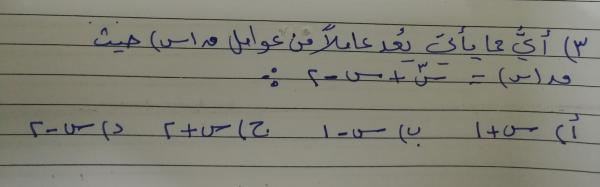 ٣) أيٌّ مما يأتي يُعد عاملاً من عوامل ص(س) حيث
ص(س) = س٣ + س - ٢ ؟
أ) س+١ ب) س-١ ج) س+٢ د) س-٢